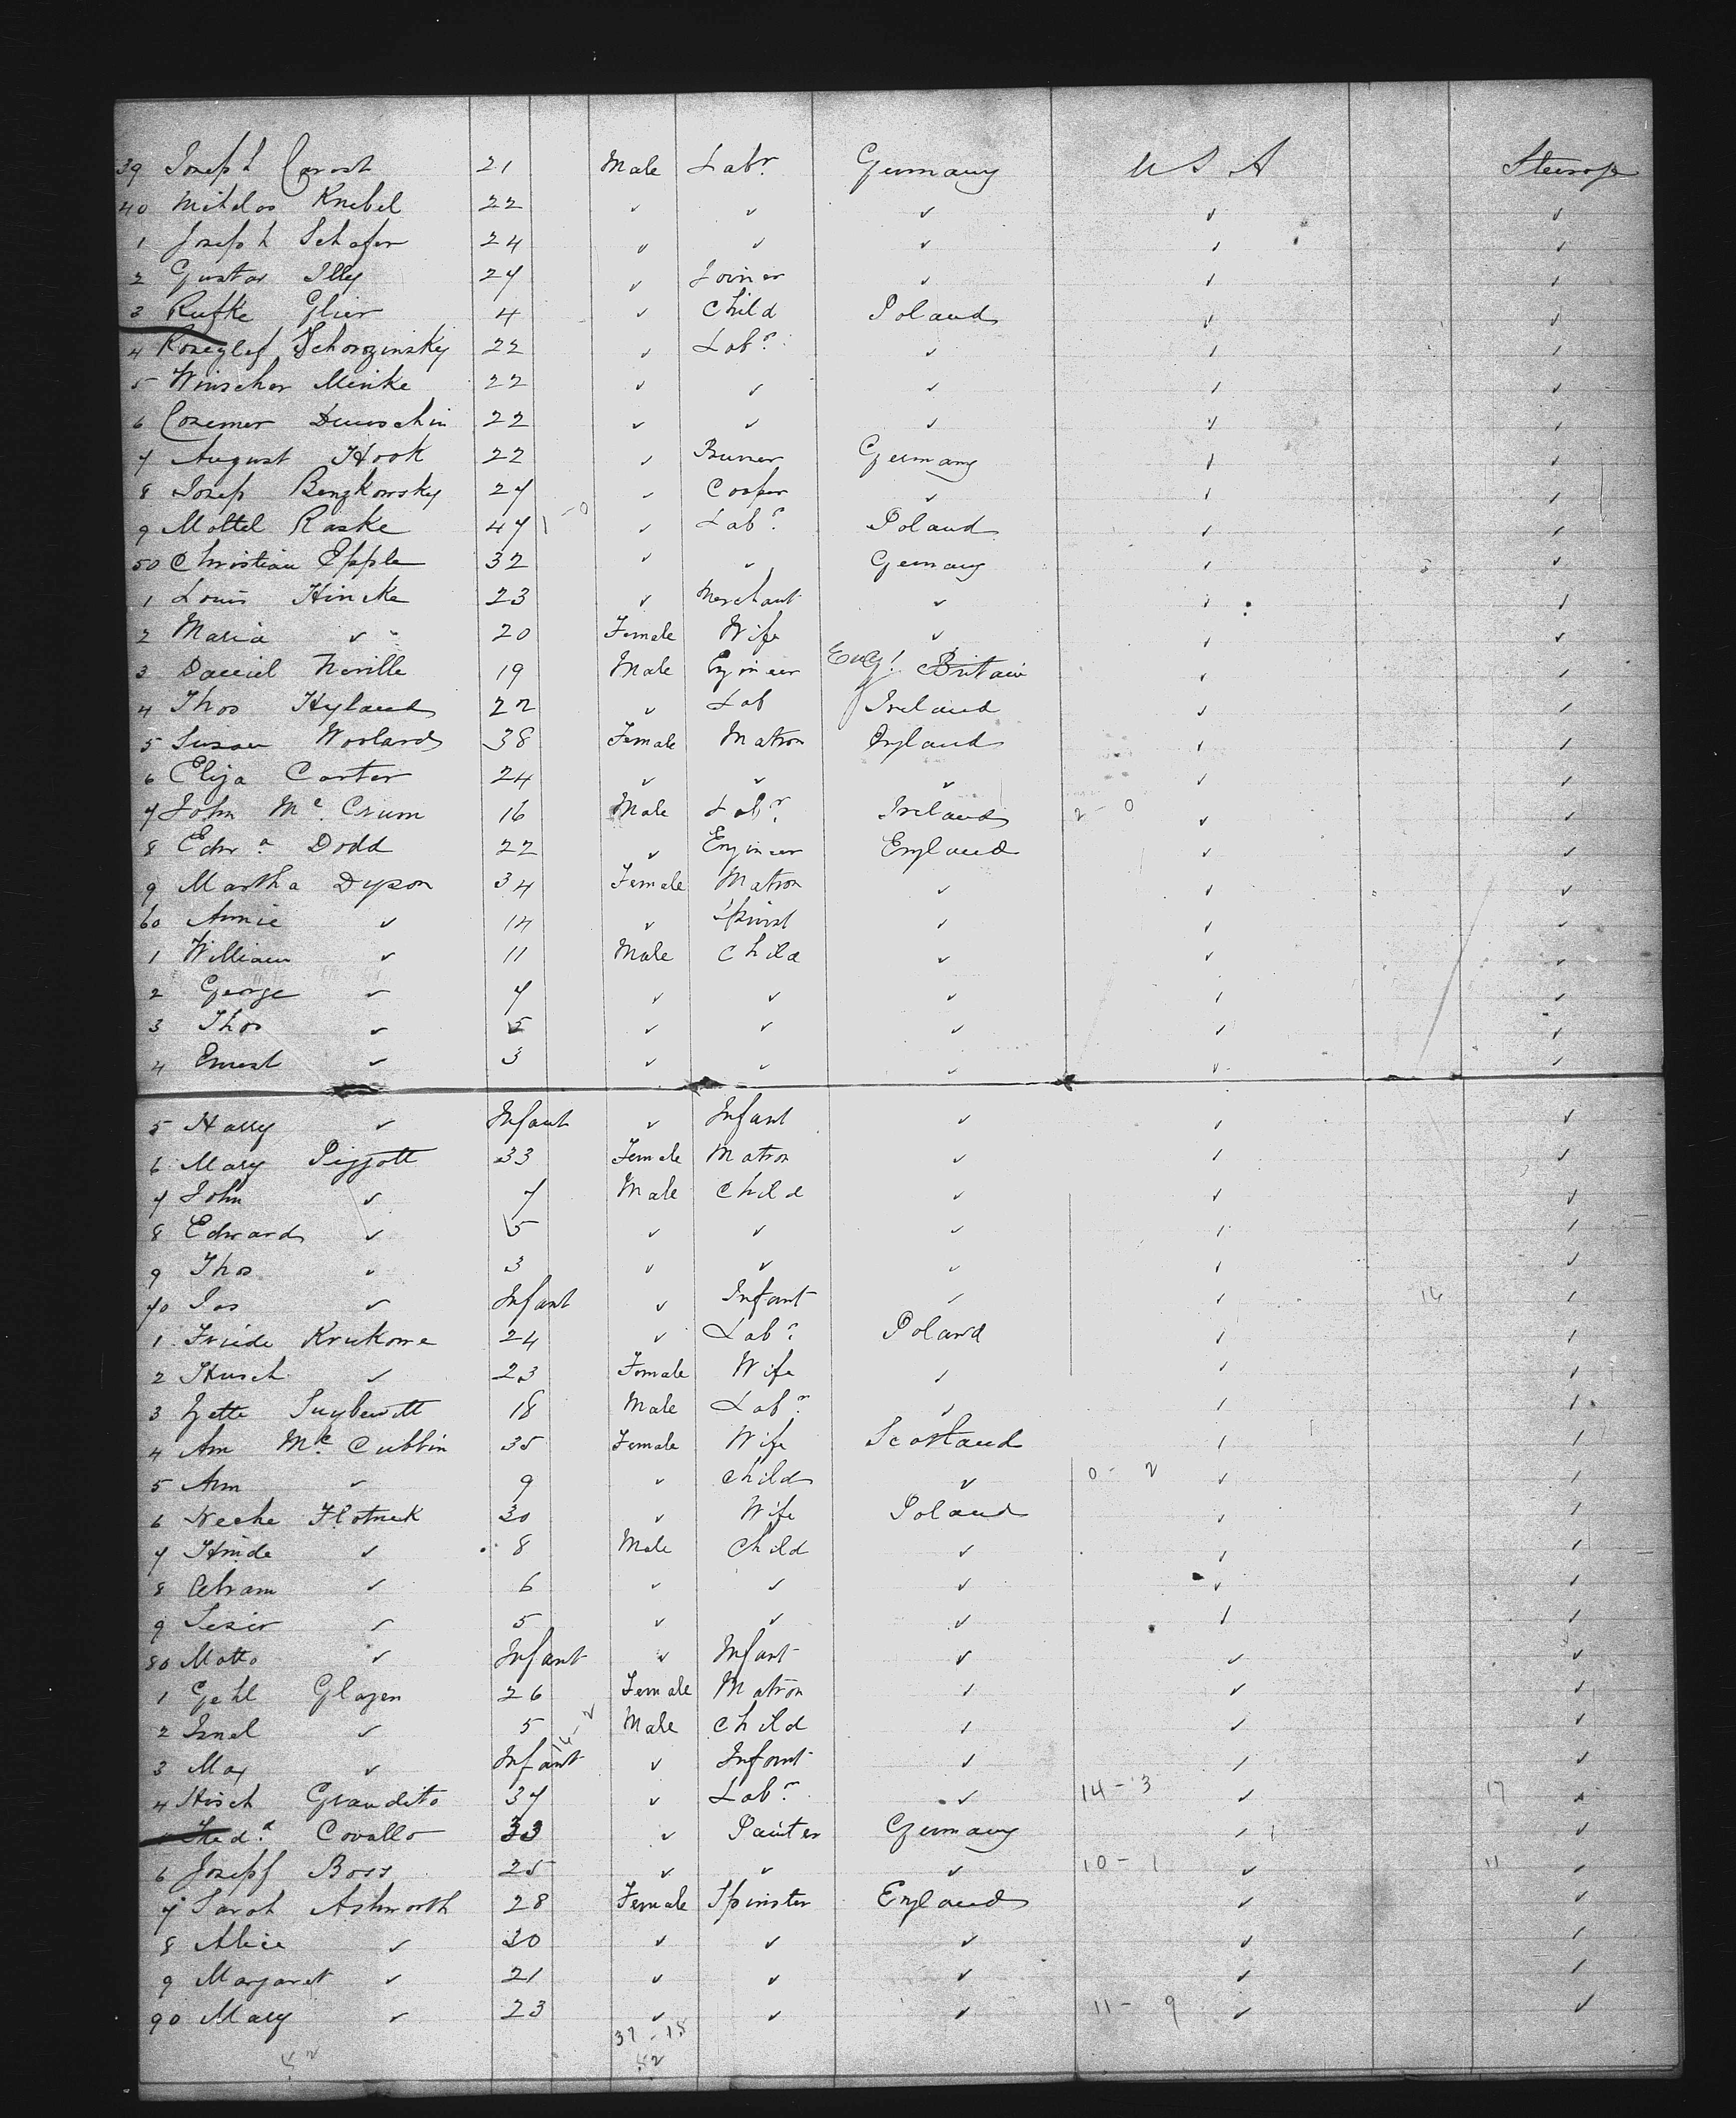 39 Joseph 21 Male Labr. Germany U S A Steerage
40 Knebel 22 ✓ ✓ ✓ ✓ ✓
1 Joseph Schafer 24 ✓ ✓ ✓ ✓ ✓
2 Gustav Illy 27 ✓ Joiner ✓ ✓ ✓
3 Rufke Glier 4 ✓ Child Poland ✓ ✓
4 22 ✓ Labr. ✓ ✓ ✓
5 Minke 22 ✓ ✓ ✓ ✓ ✓
6 Cosemer 22 ✓ ✓ ✓ ✓ ✓
7 August Hook 22 ✓ Germany ✓ ✓
8 Josef Bengkowsky 27 ✓ Cooper ✓ ✓ ✓
9 Mottel Raske 47 1-0 ✓ Labr. Poland ✓ ✓
50 Christian Epple 32 ✓ ✓ Germany ✓ ✓
1 Louis Hincke 23 ✓ Merchant ✓ ✓ ✓
2 Maria ✓ 20 Female Wife ✓ ✓ ✓
3 Daniel Neville 19 Male Engineer Eng! Britain ✓ ✓
4 Thos Hyland 22 ✓ Lab Ireland ✓ ✓
5 Susan Worland 38 Female Matron England ✓ ✓
6 Eliza Carter 24 ✓ ✓ ✓ ✓ ✓
7 John Mc. Crum 16 Male Labr. Ireland 2-0 ✓ ✓
8 Edwd Dodd 22 ✓ Engineer England ✓ ✓
9 Martha Dyson 34 Female Matron ✓ ✓ ✓
60 Annie ✓ 14 ✓ Spinst ✓ ✓ ✓
1 William ✓ 11 Male Child ✓ ✓ ✓
2 George ✓ 7 ✓ ✓ ✓ ✓ ✓
3 Thos ✓ 5 ✓ ✓ ✓ ✓ ✓
4 Ernest ✓ 3 ✓ ✓ ✓ ✓ ✓
5 Harry ✓ Infant ✓ Infant ✓ ✓ ✓
6 Mary Piggott 33 Female Matron ✓ ✓ ✓
7 John ✓ 7 Male Child ✓ ✓ ✓
8 Edward ✓ 5 ✓ ✓ ✓ ✓ ✓
9 Thos ✓ 3 ✓ ✓ ✓ ✓ ✓
70 Jas ✓ Infant ✓ Infant ✓ ✓ 14 ✓
1 Friede Krukowe 24 ✓ Labr. Poland ✓ ✓
2 Husch ✓ 23 Female Wife ✓ ✓ ✓
3 Yette 18 Male Labr. ✓ ✓ ✓
4 Ann Mc. Cubbin 35 Female Wife Scotland ✓ ✓
5 Ann ✓ 9 ✓ Child ✓ 0-2 ✓ ✓
6 Neche Flotnuk 30 ✓ Wife Poland ✓ ✓
7 Hinde ✓ 8 Male Child ✓ ✓ ✓
8 Abram ✓ 6 ✓ ✓ ✓ ✓ ✓
9 Lesir ✓ 5 ✓ ✓ ✓ ✓ ✓
80 Motto ✓ Infant ✓ Infant ✓ ✓ ✓
1 Gehl Glazen 26 Female Matron ✓ ✓ ✓
2 Isnel ✓ 5 14-2 Male Child ✓ ✓ ✓
3 Max ✓ Infant ✓ Infant ✓ ✓ ✓
4 Hisch Grandito 37 ✓ Labr. ✓ 14-3 ✓ 17 ✓
Fredk. Covallo 33 ✓ Painter Germany ✓ ✓
6 Josepf Boss 25 ✓ ✓ ✓ 10-1 ✓ 11 ✓
7 Sarah Ashworth 28 Female Spinster England ✓ ✓
8 Alice ✓ 30 ✓ ✓ ✓ ✓ ✓
9 Margaret ✓ 21 ✓ ✓ ✓ ✓ ✓
90 Mary ✓ 23 ✓ ✓ ✓ 11-9 ✓ ✓
37-15
52 52